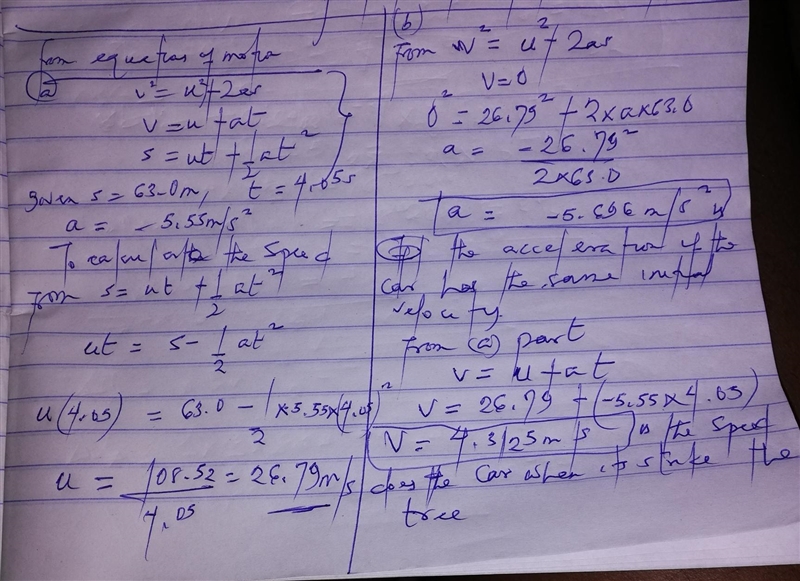 from equations of motion
(a) v² = u² + 2as
v = u + at
s = ut + 1/2 at²
given s = 63.0m, t = 4.05s
a = -5.55m/s²
To calculate the Speed
from s = ut + 1/2 at²
ut = s - 1/2 at²
u(4.05) = 63.0 - 1/2 × 5.55 × (4.05)²
u = 108.52/4.05 = 26.79m/s
(b)
from v² = u² + 2as
v = 0
0² = 26.79² + 2×a×63.0
a = -26.79²/2×63.0
a = -5.696 m/s²
the acceleration if the
car has the same initial
velocity.
from (a) part
v = u + at
v = 26.79 + (-5.55×4.05)
V = 4.3125m/s is the Speed
does the car when it strike the
tree